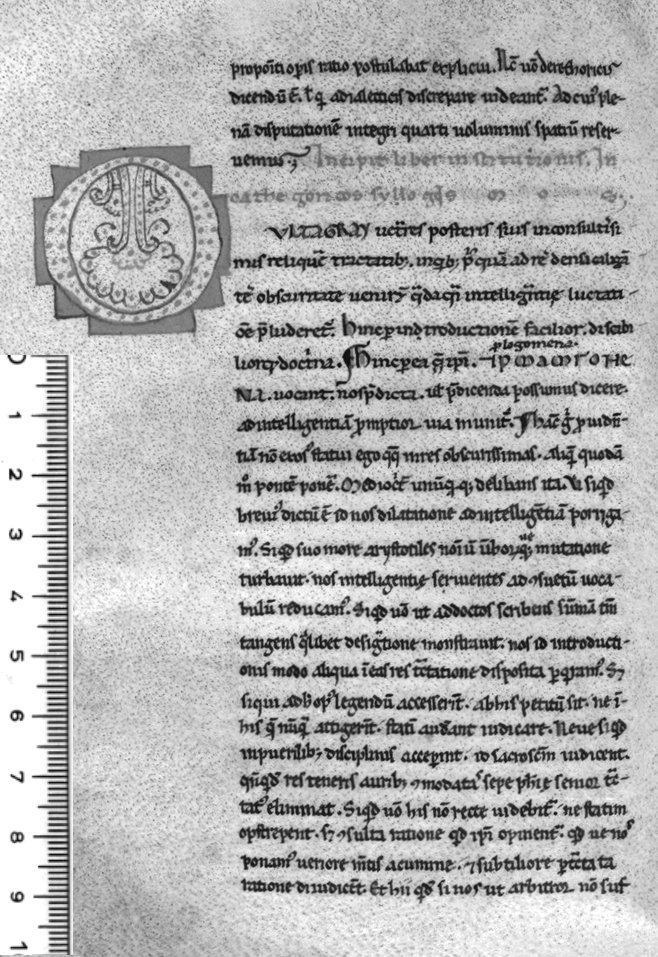 propoſiti opis ratio poſtulabat explicui. Nc̄ uō de rethoricis
dicendū ē. ł q̄ a dialecticis diſcrepare uideant᷑. Ad cui᷒ ple-
nā diſputationē integri quarti uoluminis ſpatiū reſer-
uemus
Incipit liber inſtitutionis. In
cathegoricos ſyllogiſ mos.
MULTA GRAI ueteres poſteris ſuis in conſultiſsi
mis reliquer̄ tractatib;. in q̇b; p᷒quā ad rē denſa caligī
tē obſcuritate uenirēt q̇dā q̄ſi intelligētię luctati-
ōe p̄luderet᷑. hinc p introductionē facilior. diſcibi
lior q; doctrina. hinc p ea q̄ ipſi. ΠΡΟΛΕΓΟΜΕΝΑ
plogomena.
uocant. ł nos p̄dicta. uł p̄dicenda poſſumus dicere.
ad intelligentiā pmptior uia munit᷑. hāc g̊ puidē-
tiā nō exoſus ſtatui ego qq; in res obſcuriſſimas. aliqē quodā
m̊ pontē ponē. Mediocrit̄ unūq;q; delibans ita. Vt ſiqd
breui᷒ dictū ē id nos dilatatione ad intelligentiā porriga-
m᷒. Siqd ſuo more aryſtotiles noīū uerborq; mutatione
turbauit. nos intelligentię ſeruientes ad ꝯſuetū uoca-
bulū reducam᷒. Siqd uō ut ad doctos ſcribens ſūmā tm̄
tangens q̇libet deſignatione monſtrauit. nos id introducti-
onis modo aliqua ī eas res tractatione diſpoſita pq̇ram᷒. Sꝫ
ſiqui ad h̊ op᷒ legendū acceſſerint. ab his petitū ſit. ne ī
his q̄ nūq̄ attigerint. ſtatī audeant iudicare. Neue ſiqd
in puerilib; diſciplinis acceperint. id ſacroſcm̄ iudicent.
qn̄qd res teneris aurib; ꝯmodatas ſepe phię ſenior trac-
tat᷒ eliminat. Siqd uō his nō recte uidebit᷑. ne ſtatim
opſtrepent. ſꝫ ꝯſulta ratione qd ipſi opinent᷑. qd ue nos
ponam᷒ ueriore mentis acumine. ⁊ ſubtiliore ptractata
ratione diiudicent. Et hii qd̄ ſi nos ut arbitror nō ſuf